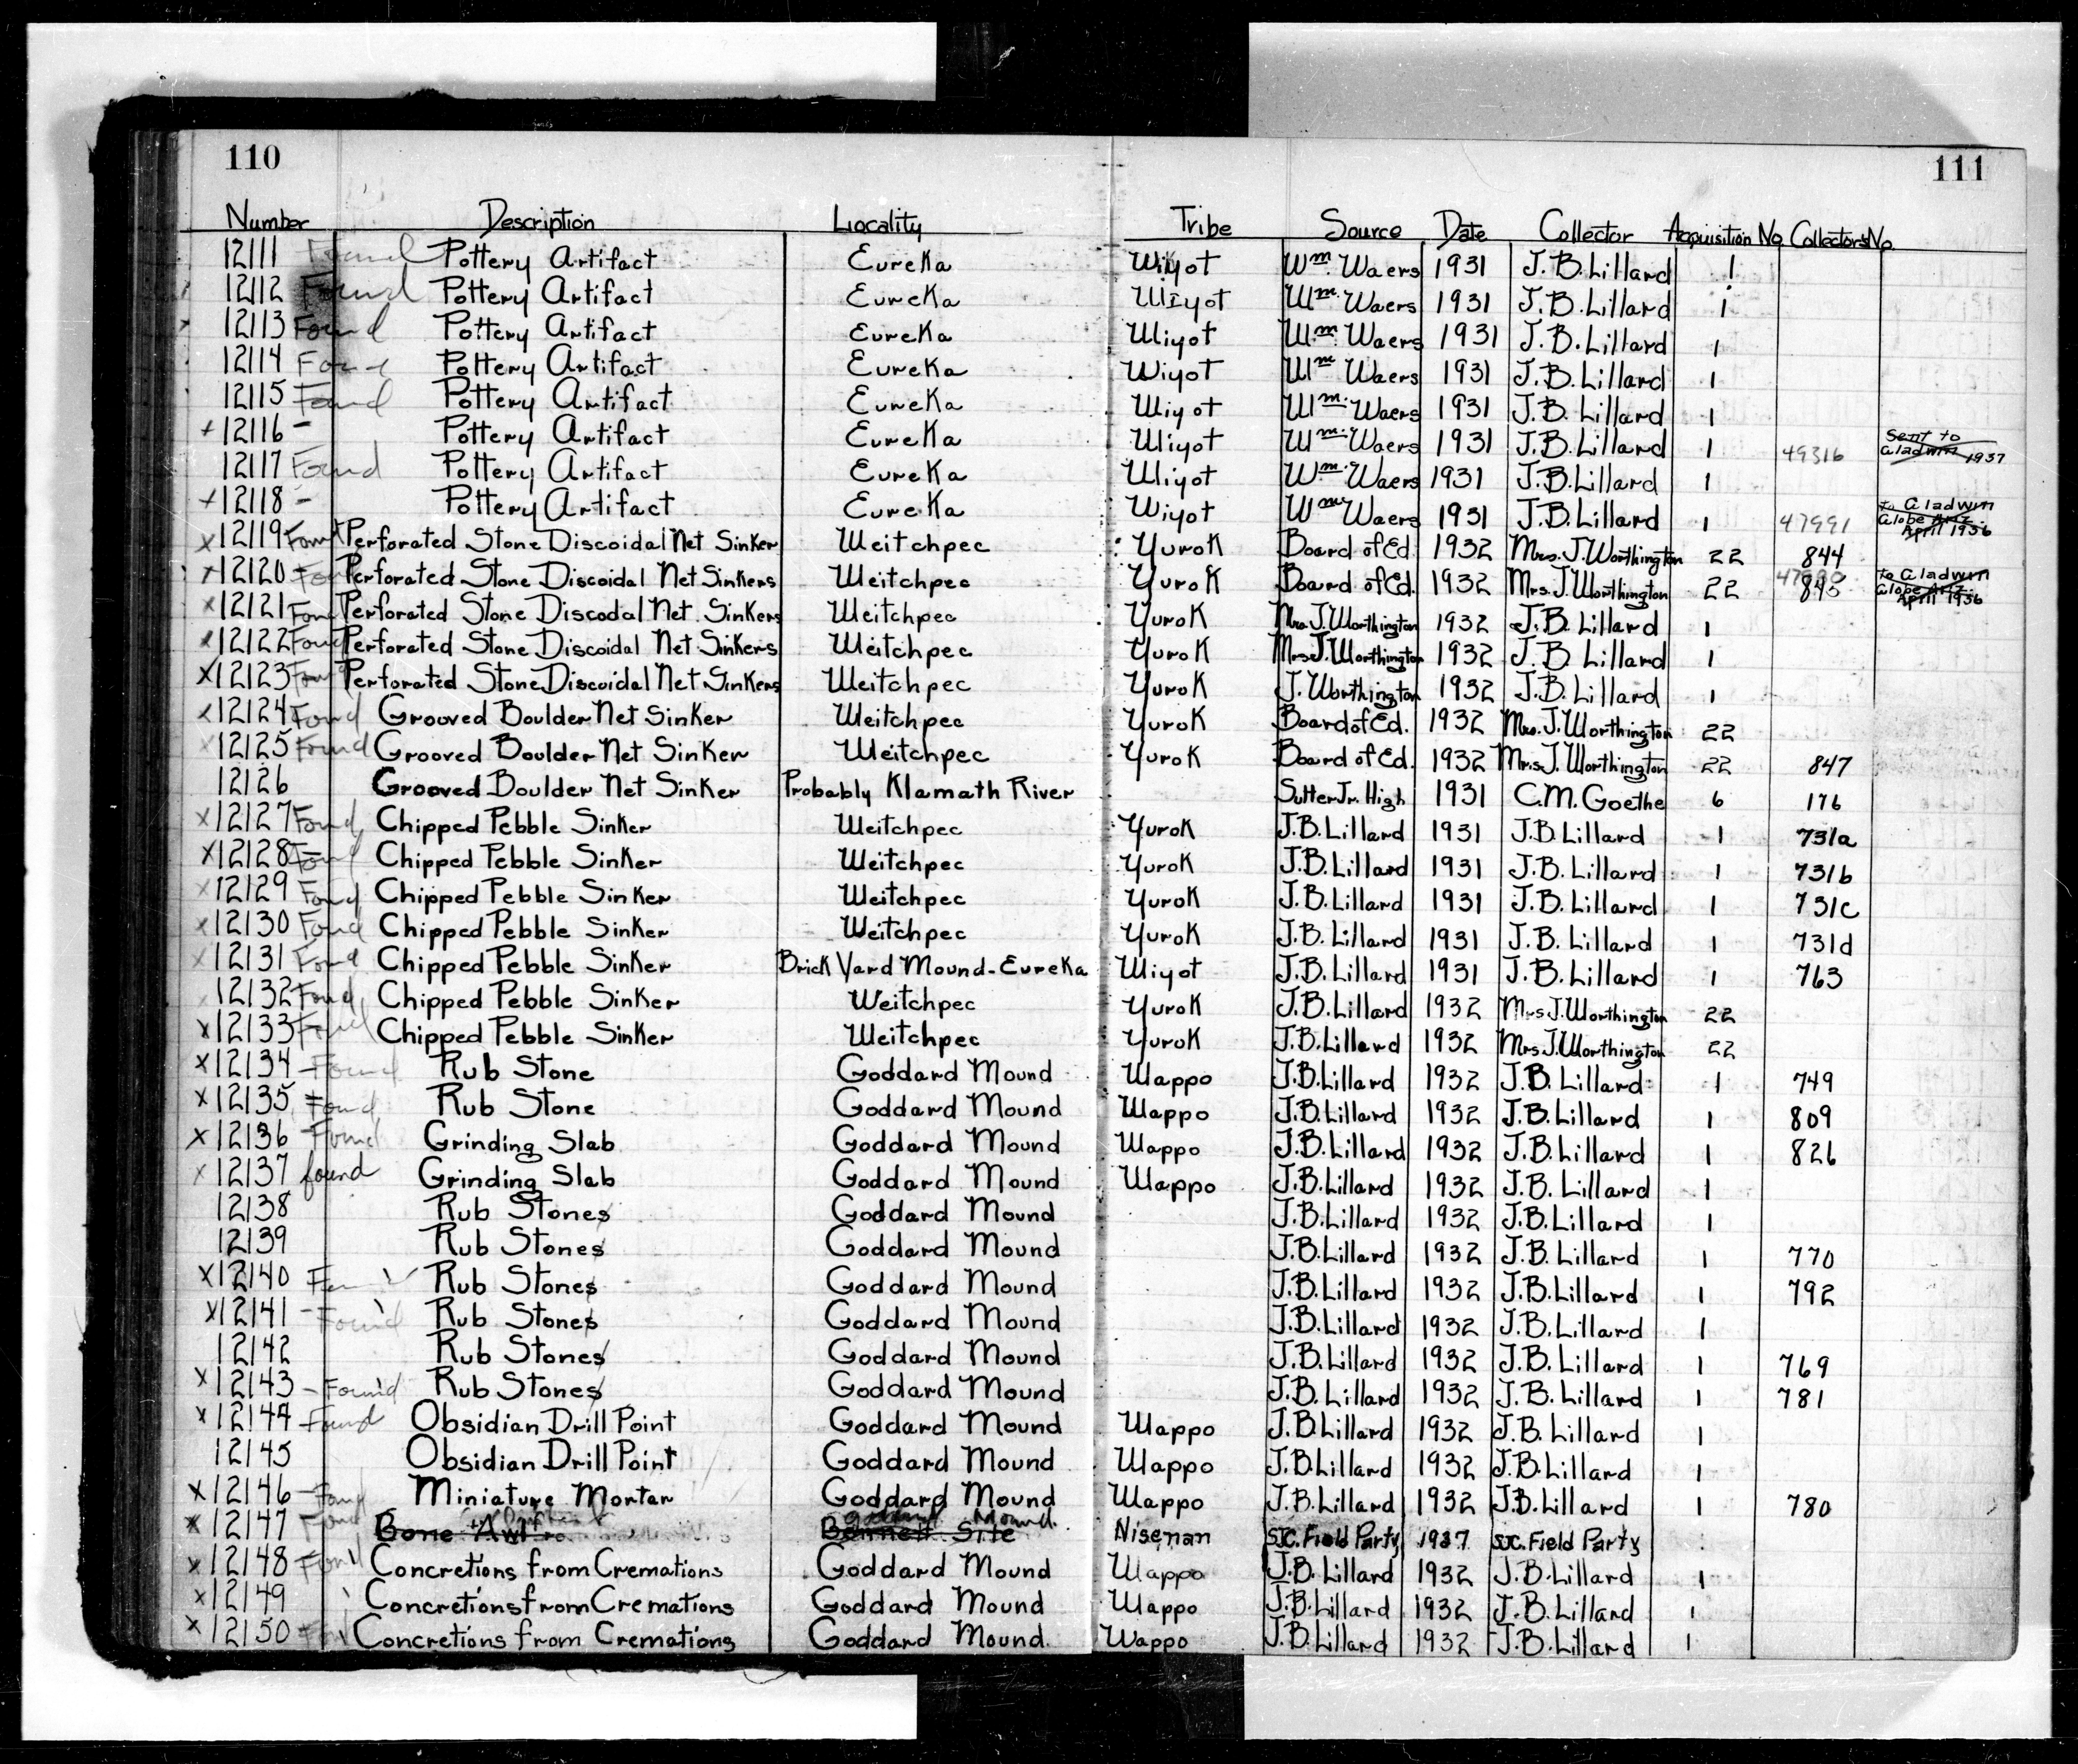 110
111
Number Description Locality Tribe Source Date Collector Acquisition No. Collectors No.
12111 Found Pottery Artifact Eureka Wiyot Wm. Waers 1931 J.B. Lillard 1
12112 Found Pottery Artifact Eureka Wiyot Wm. Waers 1931 J.B. Lillard 1
12113 Found Pottery Artifact Eureka Wiyot Wm. Waers 1931 J.B. Lillard 1
12114 Found Pottery Artifact Eureka Wiyot Wm Waers 1931 J.B. Lillard 1
12115 Found Pottery Artifact Eureka Wiyot Wm. Waers 1931 J.B. Lillard 1
+ 12116 - Pottery Artifact Eureka Wiyot Wm. Waers 1931 J.B. Lillard 1 49316 Sent to Gladwin 1937
12117 Found Pottery Artifact Eureka Wiyot Wm. Waers 1931 J.B. Lillard 1
+ 12118 - Pottery Artifact Eureka Wiyot Wm Waers 1931 J.B. Lillard 1 47991 to Gladwin Globe Ariz. April 1936
x 12119 Found Perforated Stone Discoidal Net Sinker Weitchpec Yurok Board of Ed. 1932 Mrs. J. Worthington 22 844
x 12120 Found Perforated Stone Discoidal Net Sinkers Weitchpec Yurok Board of Ed. 1932 Mrs. J. Worthington 22 843 to Gladwin Globe Ariz. April 1936
x 12121 Found Perforated Stone Discodal Net Sinkers Weitchpec Yurok Mrs. J. Worthington 1932 J.B. Lillard 1
x 12122 Found Perforated Stone Discoidal Net Sinkers Weitchpec Yurok Mrs J. Worthington 1932 J.B. Lillard 1
x 12123 Found Perforated Stone Discoidal Net Sinkers Weitchpec Yurok J. Worthington 1932 J.B. Lillard 1
x 12124 Found Grooved Boulder Net Sinker Weitchpec Yurok Board of Ed. 1932 Mrs. J. Worthington 22
x 12125 Found Grooved Boulder Net Sinker Weitchpec Yurok Board of Ed. 1932 Mrs J. Worthington 22 847
12126 Grooved Boulder Net Sinker Probably Klamath River Sutter Jr. High 1931 C.M. Goethe 6 176
x 12127 Found Chipped Pebble Sinker Weitchpec Yurok J.B. Lillard 1931 J.B. Lillard 1 731a
x 12128 Found Chipped Pebble Sinker Weitchpec Yurok J.B. Lillard 1931 J.B. Lillard 1 731b
x 12129 Found Chipped Pebble Sinker Weitchpec Yurok J.B. Lillard 1931 J.B. Lillard 1 731c
x 12130 Found Chipped Pebble Sinker Weitchpec Yurok J.B. Lillard 1931 J.B. Lillard 1 731d
x 12131 Found Chipped Pebble Sinker Brick Yard Mound - Eureka Wiyot J.B. Lillard 1931 J.B. Lillard 1 763
12132 Found Chipped Pebble Sinker Weitchpec Yurok J.B. Lillard 1932 Mrs J. Worthington 22
x 12133 Found Chipped Pebble Sinker Weitchpec Yurok J.B. Lillard 1932 Mrs J. Worthington 22
x 12134 Found Rub Stone Goddard Mound Wappo J.B. Lillard 1932 J.B. Lillard 1 749
x 12135 Found Rub Stone Goddard Mound Wappo J.B. Lillard 1932 J.B. Lillard 1 809
x 12136 Found Grinding Slab Goddard Mound Wappo J.B. Lillard 1932 J.B. Lillard 1 826
x 12137 found Grinding Slab Goddard Mound Wappo J.B. Lillard 1932 J.B. Lillard 1
12138 Rub Stones Goddard Mound J.B. Lillard 1932 J.B. Lillard 1
12139 Rub Stones Goddard Mound J.B. Lillard 1932 J.B. Lillard 1 770
x 12140 Rub Stones Goddard Mound J.B. Lillard 1932 J.B. Lillard 1 792
x 12141 - Found Rub Stones Goddard Mound J.B. Lillard 1932 J.B. Lillard 1
12142 Rub Stones Goddard Mound J.B. Lillard 1932 J.B. Lillard 1 769
x 12143 - Found Rub Stones Goddard Mound J.B. Lillard 1932 J.B. Lillard 1 781
x 12144 Found Obsidian Drill Point Goddard Mound Wappo J.B. Lillard 1932 J.B. Lillard 1
12145 Obsidian Drill Point Goddard Mound Wappo J.B. Lillard 1932 J.B. Lillard 1
x 12146 - Found Miniature Mortar Goddard Mound Wappo J.B. Lillard 1932 J.B. Lillard 1 780
x 12147 Found Bone Awl Bennett Site Goddard Mound Nisenan SJC. Field Party 1937 SJC. Field Party
x 12148 Found Concretions from Cremations Goddard Mound Wappo J.B. Lillard 1932 J.B. Lillard 1
x 12149 Concretions from Cremations Goddard Mound Wappo J.B. Lillard 1932 J.B. Lillard 1
x 12150 Concretions from Cremations Goddard Mound. Wappo J.B. Lillard 1932 J.B. Lillard 1